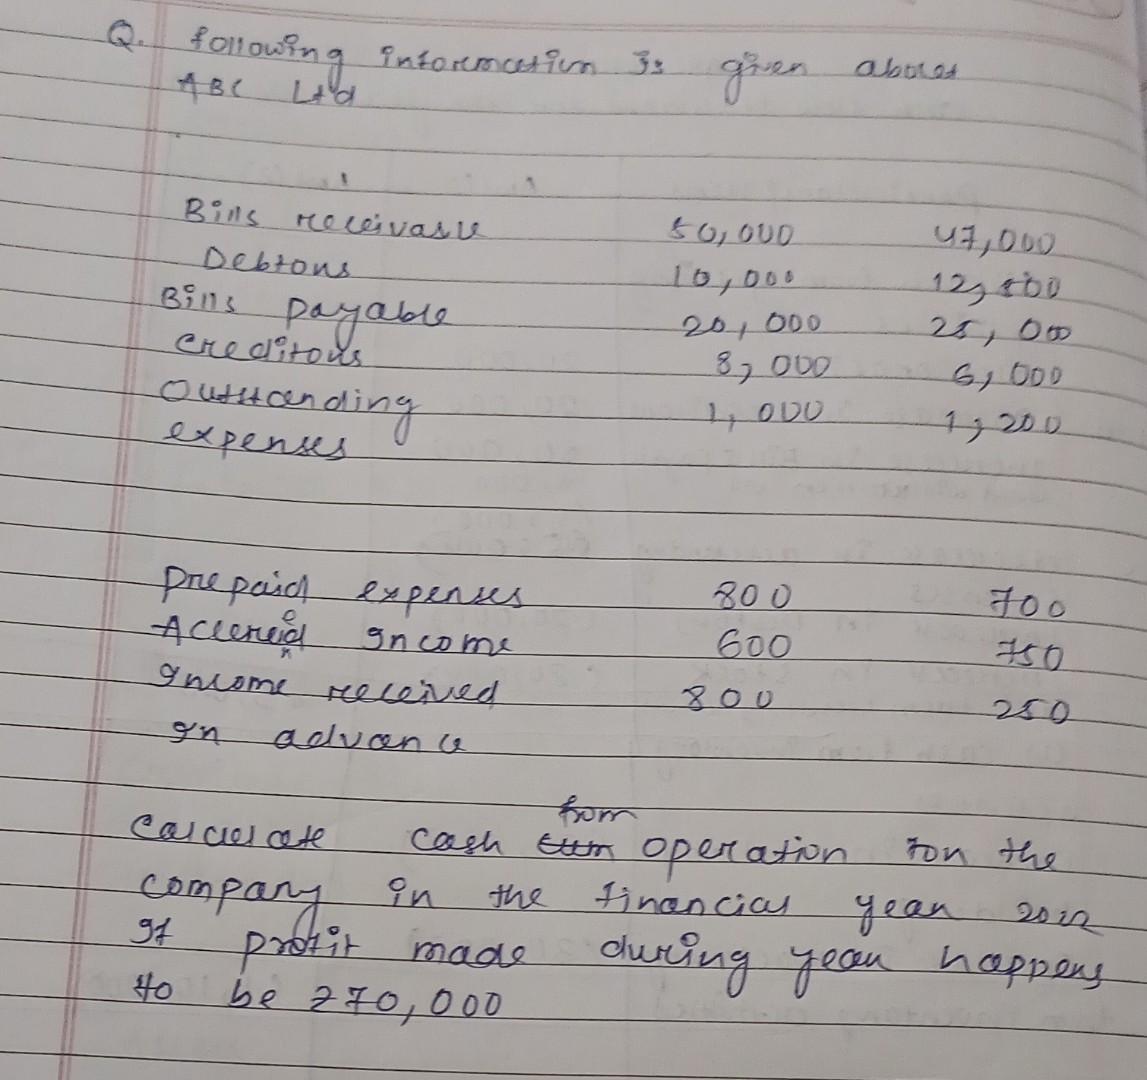 Q. following information is given about
ABC Ltd
Bills receivable 50,000 47,000
Debtors 10,000 12,500
Bills payable 20,000 25,000
Creditors 8,000 6,000
Outstanding 1,000 1,200
expenses
prepaid expenses 800 700
Accrued Income 600 750
Income received 800 250
In advance
from
Calculate cash operation for the
company in the financial year
If profit made during year happens
to be 270,000